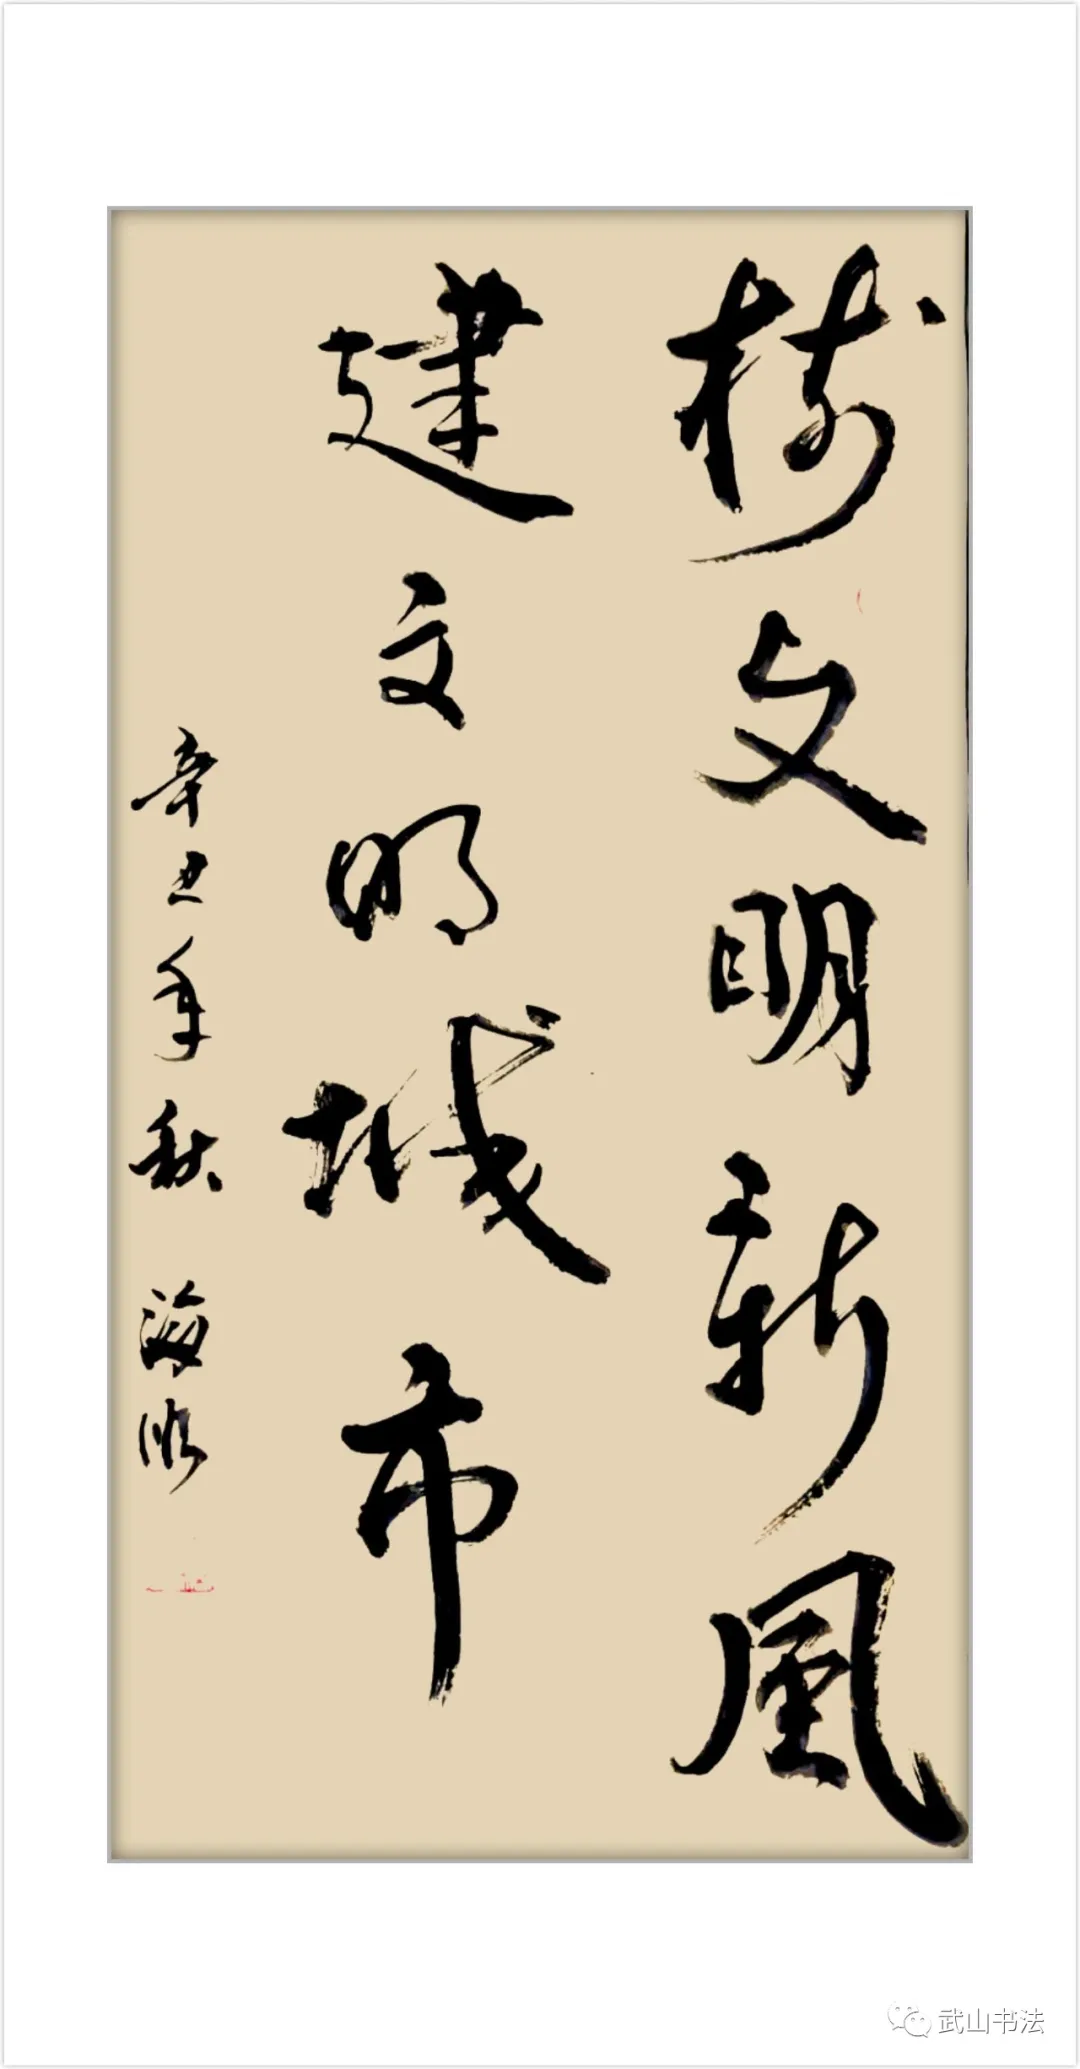 树文明新風
建文明城市
辛丑年秋 海
武山书法